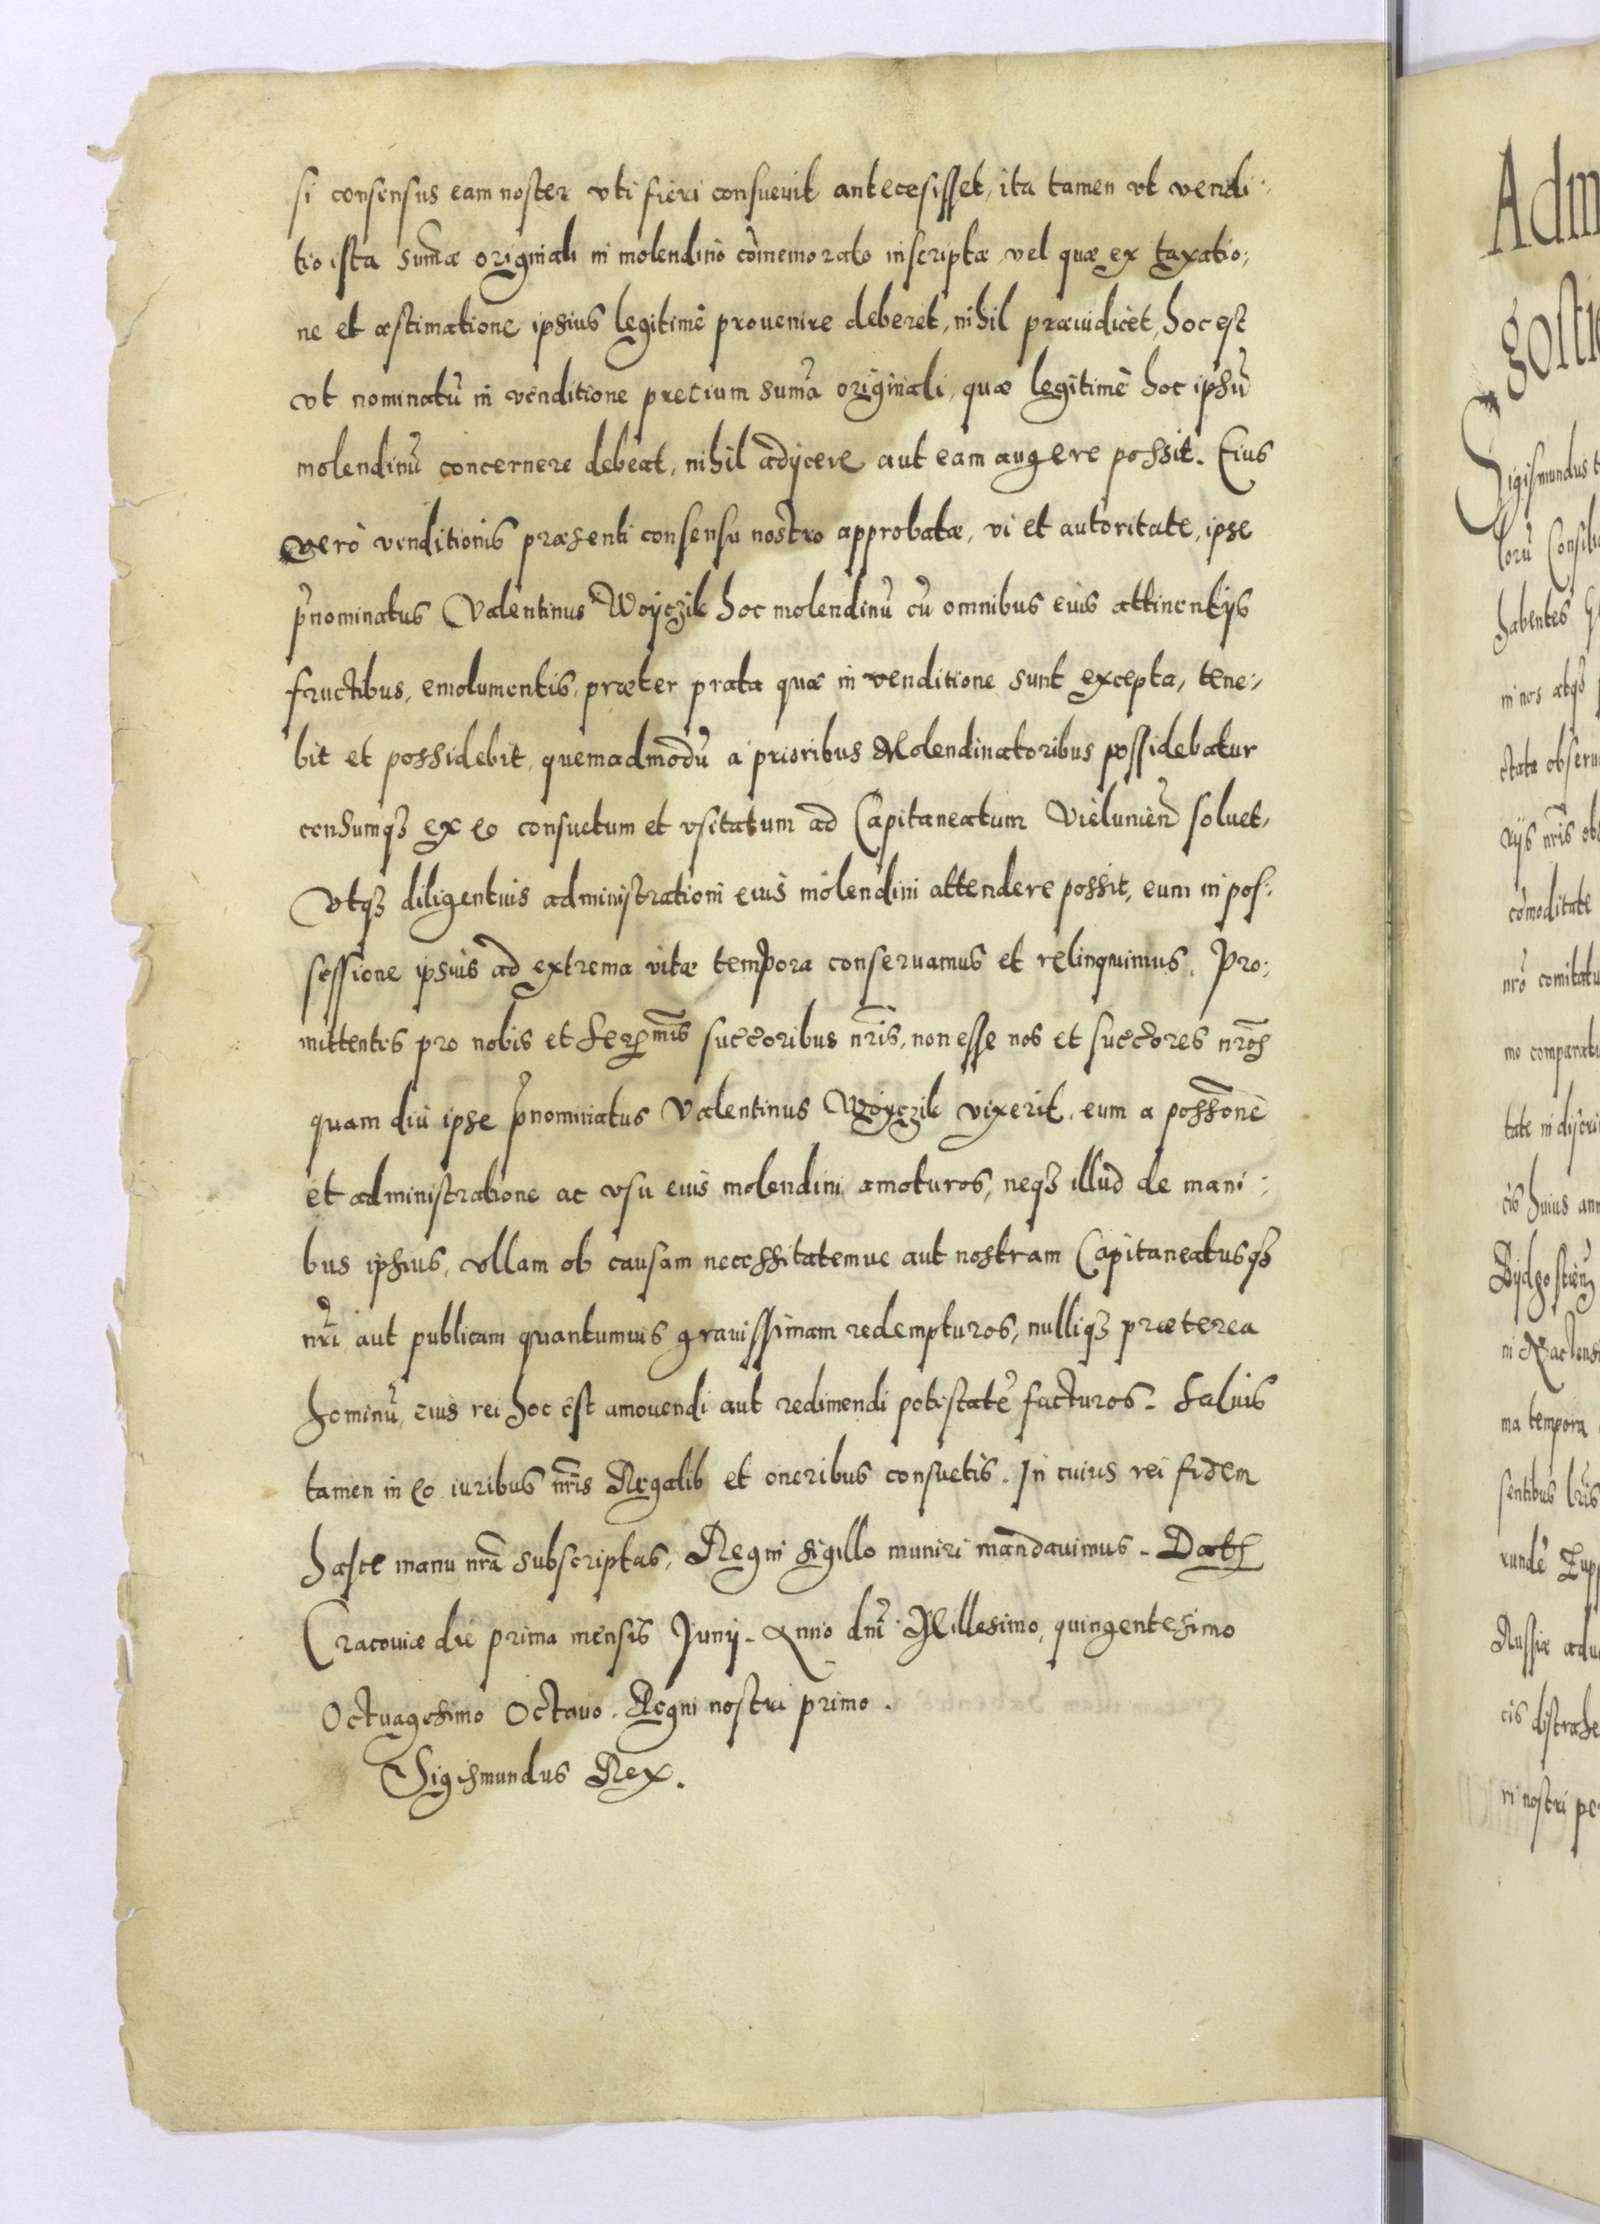 si consensus eam noster vti fieri consueuit antecesisset, ita tamen vt vendi:
tio ista sum̃æ originali in molendino cõmemorato inscriptæ, vel quæ ex taxatio:
ne et æstimatione ipsius legitimè prouenire deberet, nihil præiudicet, hoc est
vt nominatũ in venditione precium sum̃a originali, quæ legitimè hoc ipsũ
molendinũ concernere debeat, nihil adÿcere aut eam augere possit. Eius
verò venditionis præsenti consensu nostro approbatæ, vi et autoritate, ipse
p̃nominatus Valentinus Woyczik hoc molendinũ cũ omnibus eius attinentÿs
fructibus, emolumentis, præter prata quæ in venditione sunt excepta, tene:
bit et possidebit, quemadmodũ a prioribus Molendinatoribus possidebatur
censumq3 ex eo consuetum et vsitatum ad Capitaneatum Vieluniẽn soluet,
Vtq3 diligentius administrationi eius molendini attendere possit, eum in pos:
sessione ipsius ad extrema vitæ tempora conseruamus et relinquimus. Pro:
mittentes pro nobis et Ser̃mis succ̃oribus nr̃is, non esse nos et succ̃ores nr̃os
quam diu ipse p̃nominatus Valentinus Woyczik vixerit, eum a poss̃one
et administratione ac vsu eius molendini amoturos, neq3 illud de mani:
bus ipsius, vllam ob causam necessitatemue aut nostram Capitaneatusq3
nr̃i aut publicam quantumuis grauissimam redempturos, nulliq3 præterea
hominũ, eius rei hoc est amouendi aut redimendi potestatẽ facturos. Saluis
tamen in eo iuribus nr̃is Regalib et oneribus consuetis. In cuius rei fidem
hasce manu nr̃a subscriptas, Regni sigillo muniri mandauimus. Dat
Cracouiæ die prima mensis Junÿ. Anno dñi Millesimo, quingentesimo
Octuagesimo Octauo. Regni nostri primo.
Sigismundus Rex.
Adm
gosti
Sigismundus
lorũ Consili
habentes
in nos atq3
ctata obseru
rÿs nr̃is ob
cõmoditate
nrõ comitatu
mo comparatu
tate in discri
cis huius ann
Bÿdgostiẽn
ni Naclensi
ma tempora
sentibus lr̃is
rundẽ Zupp
Russiæ adu
cis distrahe
ri nostri pe